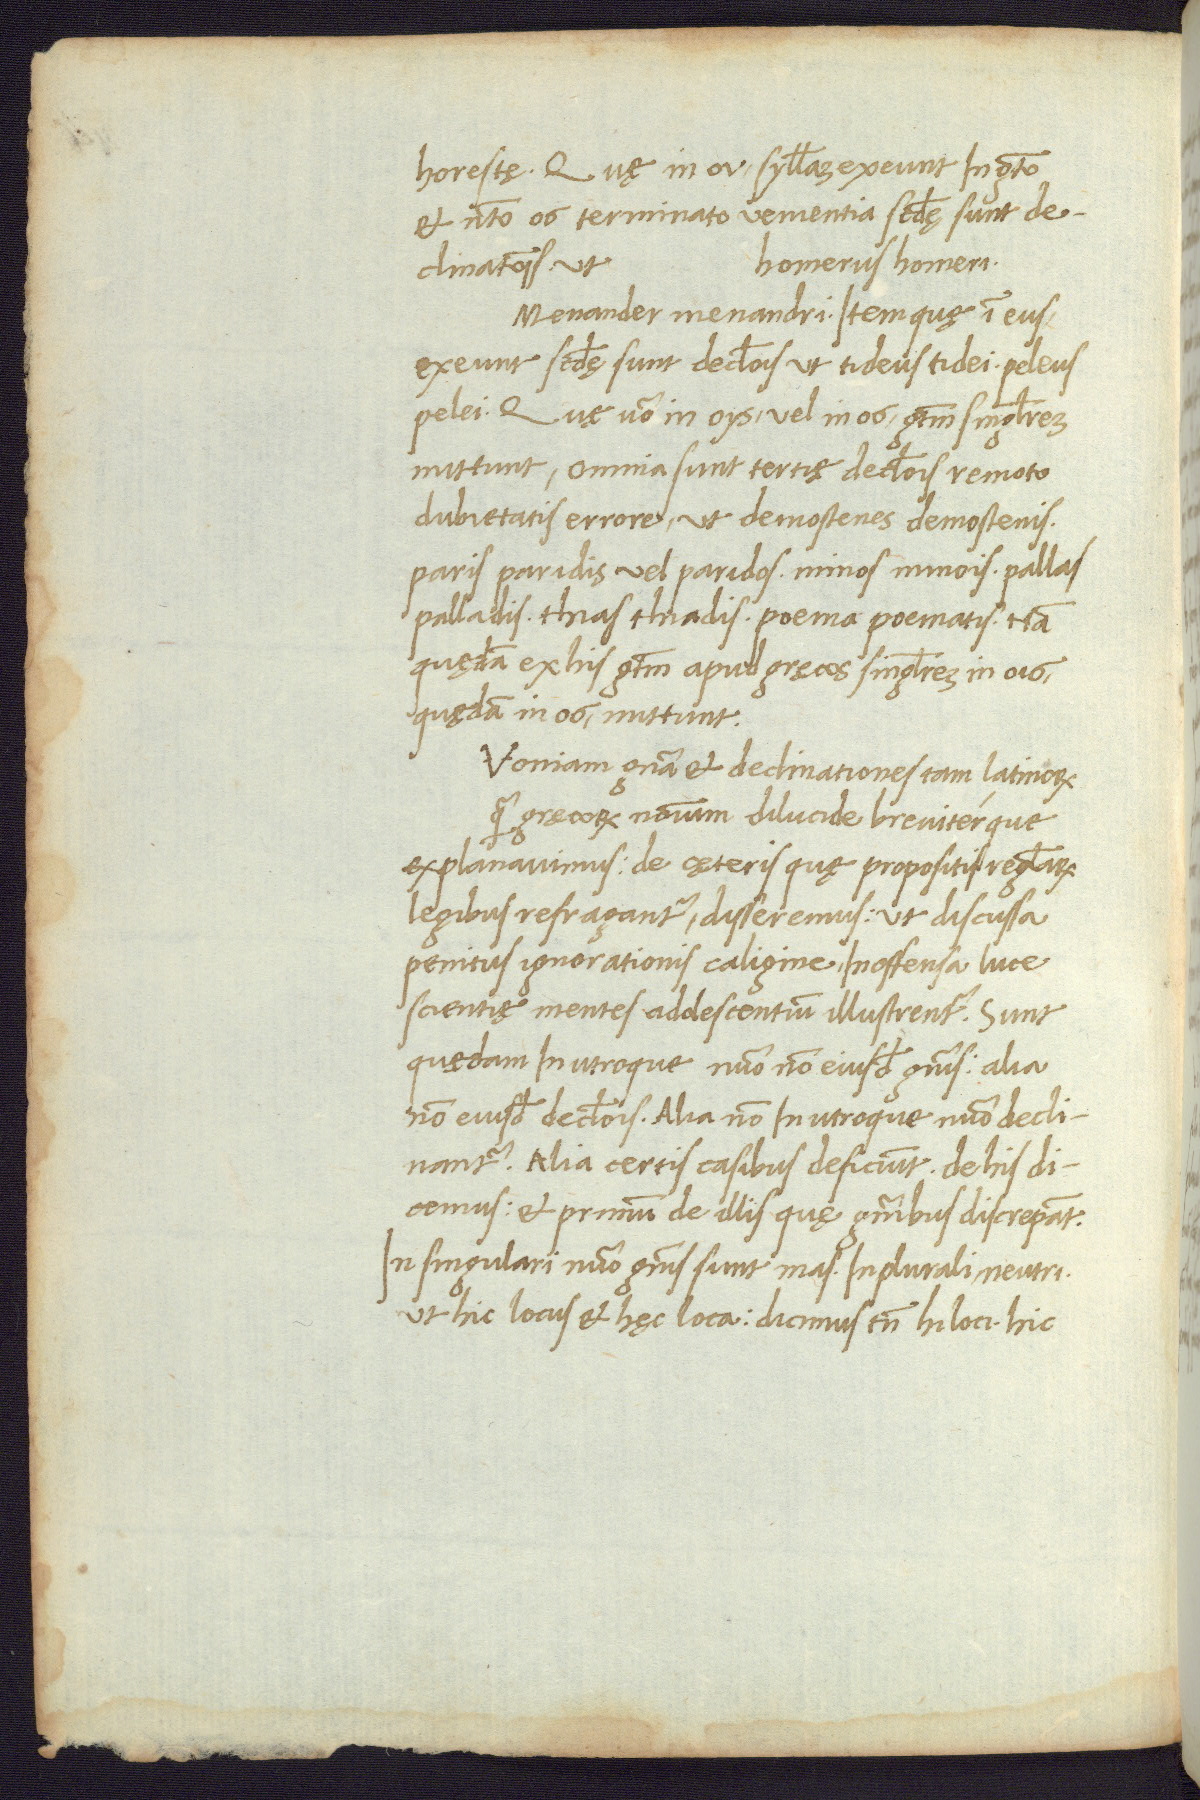 horestę. Quę in ου, syll̃aʒ exeunt In gt̃o
et nt̃o os terminato venientia scd̃ę sunt de-
clinatõis. ut homerus homeri.
Menander menandri. Item quę ĩ eus,
exeunt scd̃ę sunt decl̃ois ut tideus tidei. peleus
pelei. Quę ũo in oys, vel in os, gt̃m singl̃reʒ
mittunt, omnia sunt tertię decl̃ois remoto
dubietatis errore, ut demostenes demostenis.
paris paridis vel paridos. minos minois. pallas
palladis. thias thiadis. poema poematis. Nã
quędã ex his gt̃m apud gręcos singl̃reʒ in oιs,
quędã in os, mittunt.
Voniam gña et declinationes tam latinoꝝ
q̃ gręcoꝝ noĩum dilucide breviterque
explanavimus: de cęteris quę propositis regl̃aꝝ
legibus refragant̃, disseremus: ut discussa
penitus ignorationis caligine, Inoffensa luce
scientię mentes addescentiũ illustrent̃. Sunt
quędam In utroque nũo nõ eiusd̃ gñis: alia
nõ eiusd̃ decl̃ois. Alia nõ In utroque nũo decli-
nant̃. Alia certis casibus deficiũt. de his di-
cemus: et primũ de illis quę gñibus discrepãt.
In singulari nũo gñis sunt mas. In plurali, neutri.
ut hic locus et hęc loca: dicimus tñ hi loci. hic